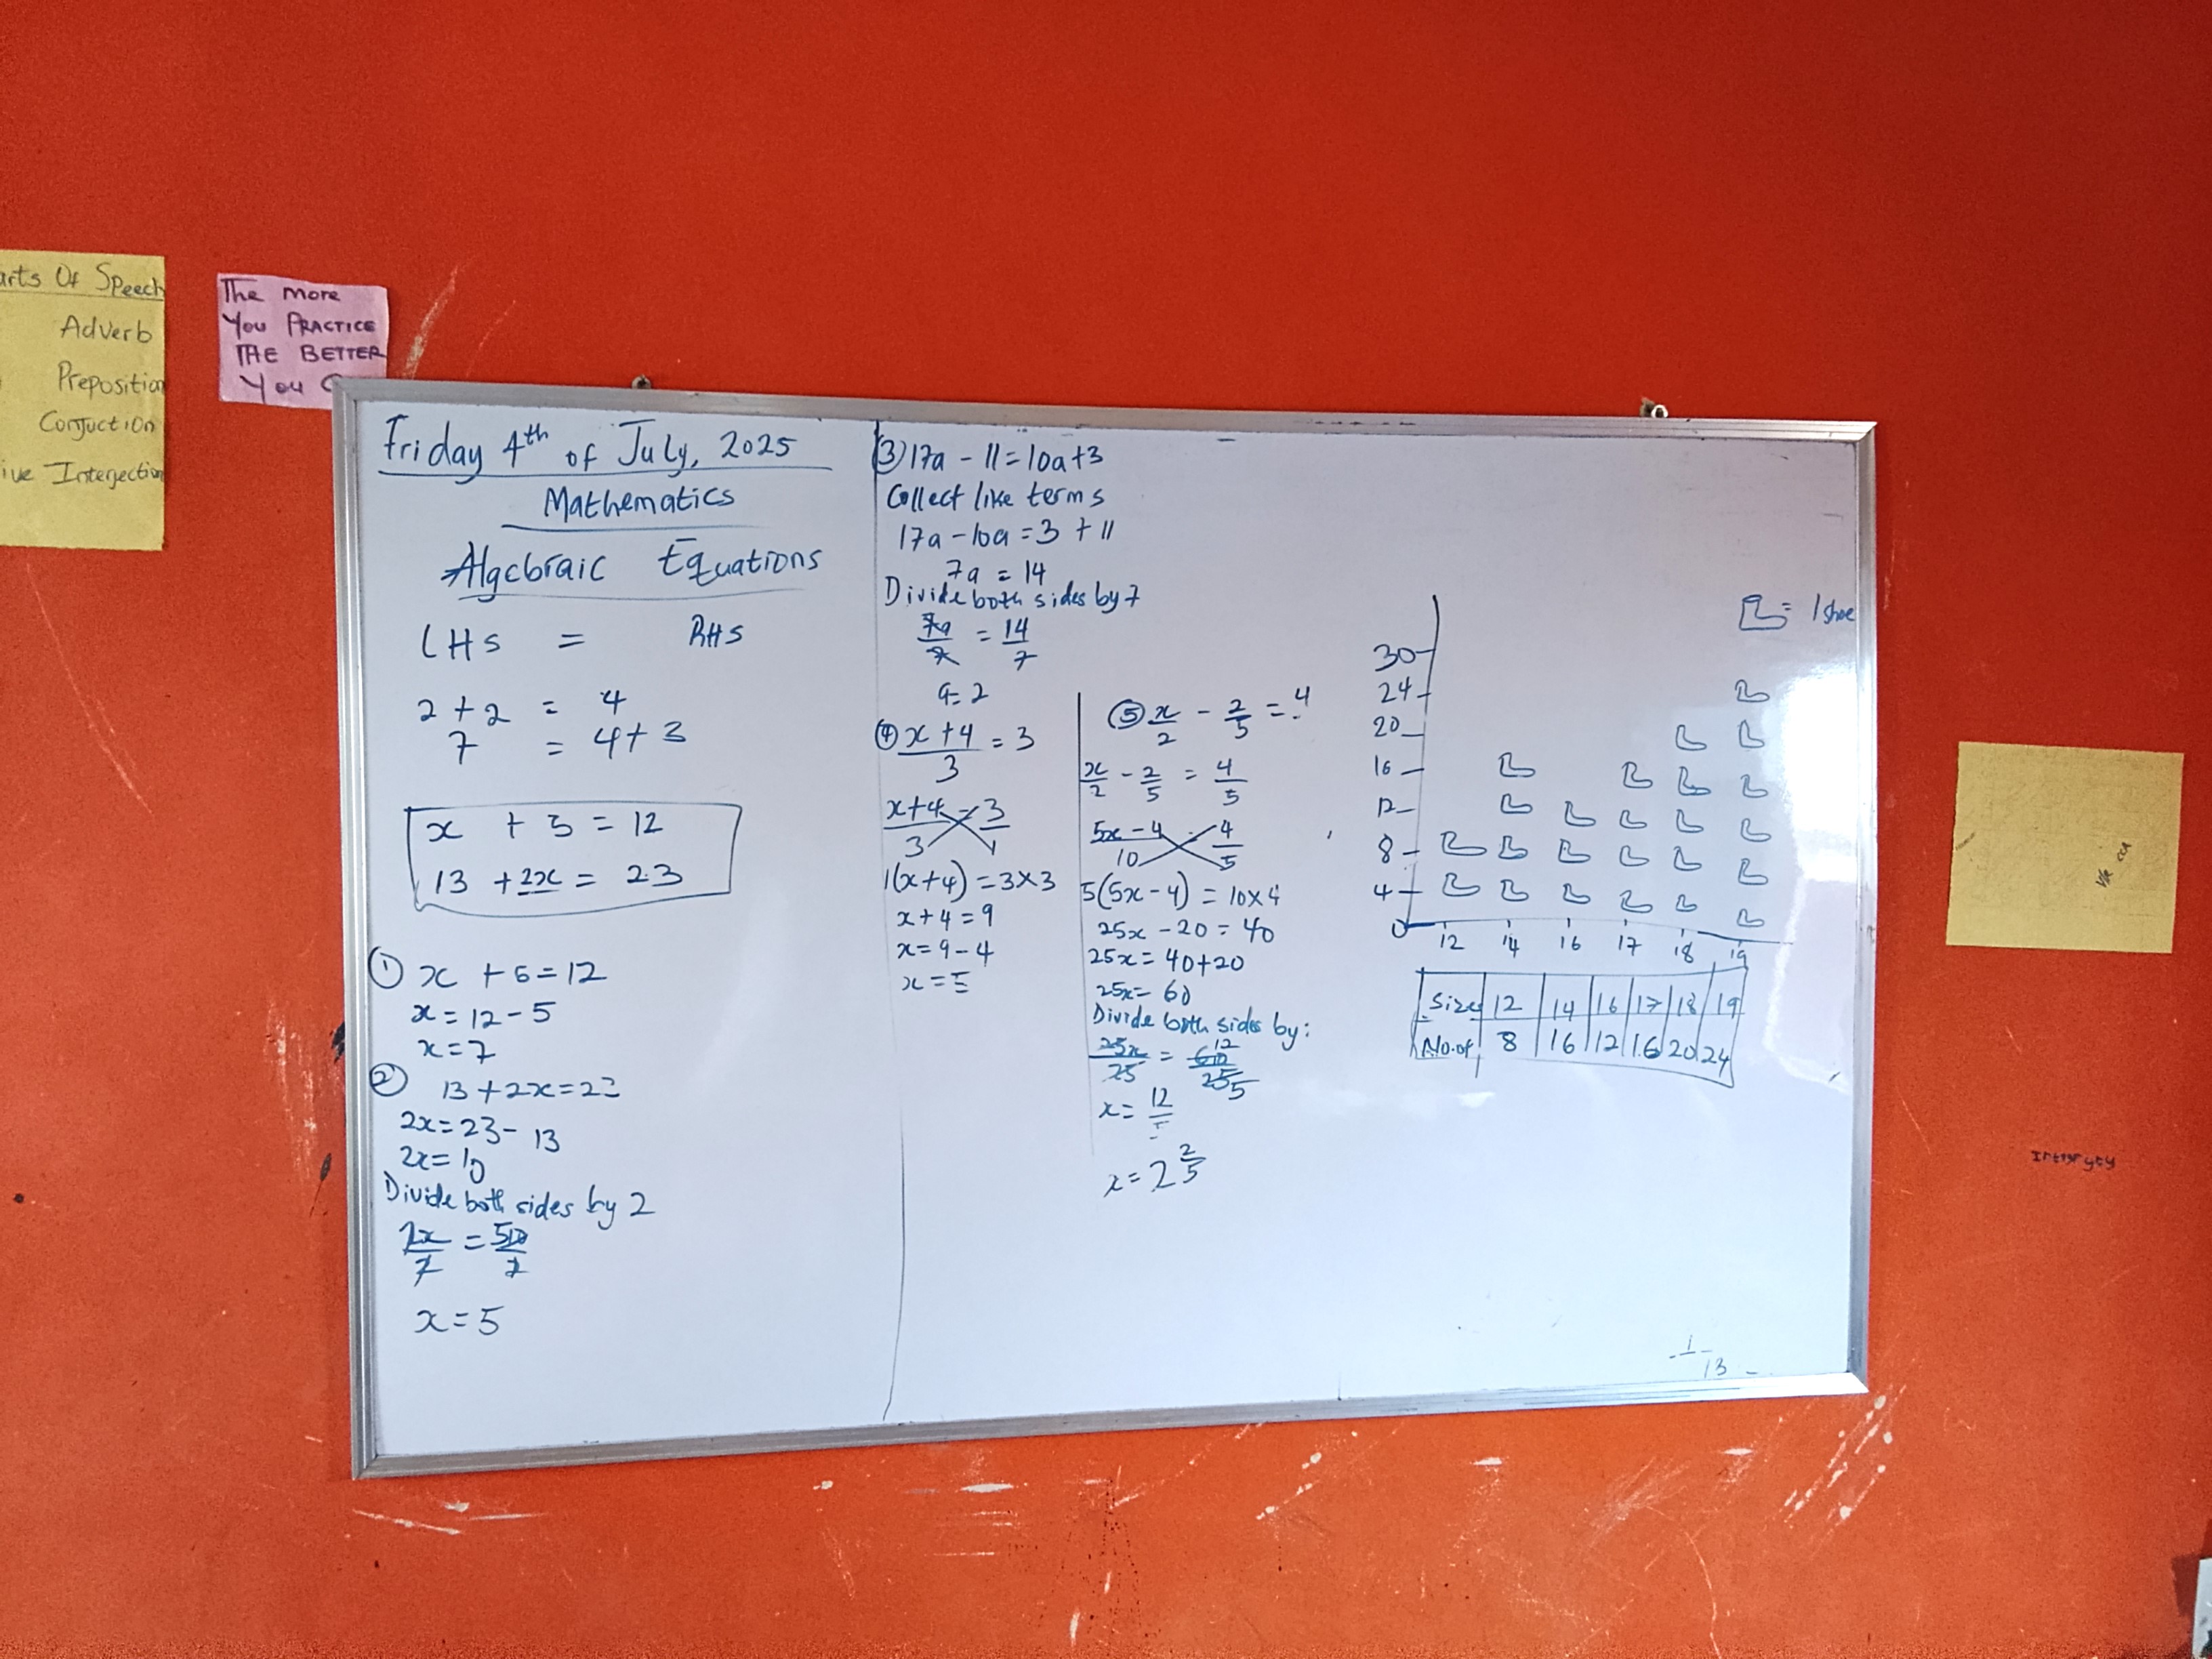 arts Of Speech
Adverb
Preposition
Conjuction
ive Interjection
The more
You PRACTICE
THE BETTER
You
Friday 4th of July, 2025
Mathematics
Algebraic Equations
LHS = RHS
2 + 2 = 4
7 = 4+3
x + 5 = 12
13 + 2x = 23
① x + 5 = 12
x = 12 - 5
x = 7
② 13 + 2x = 23
2x = 23 - 13
2x = 10
Divide both sides by 2
2x/2 = 510/2
x = 5
③ 17a - 11 = 10a+3
Collect like terms
17a - 10a = 3 + 11
7a = 14
Divide both sides by 7
7a/7 = 14/7
a = 2
④ x + 4/3 = 3
x+4/3 = 3/1
1(x+4) = 3×3
x + 4 = 9
x = 9 - 4
x = 5
⑤ x/2 - 2/5 = 4
x/2 - 2/5 = 4/5
5x - 4/10 = 4/5
5(5x - 4) = 10×4
25x - 20 = 40
25x = 40+20
25x = 60
Divide both sides by:
25x/25 = 60 12/25 5
x = 12
x = 2 2/5
= 1 shoe
30
24
20
16
12
8
4
0
12 14 16 17 18 19
Size 12 14 16 17 18 19
No. of 8 16 12 16 20 24
1
13
Integryty